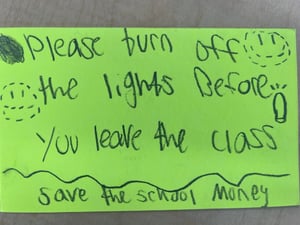 Please turn off
the lights Before
you leave the class
save the school money